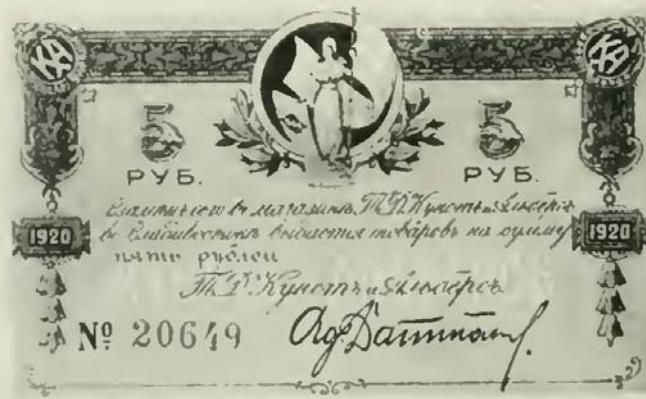 КА КА
5 5
РУБ. РУБ.
Взамѣнъ сего въ магазинѣ Т. Д. Кунстъ и Альберсъ
въ Владивостокѣ выдается товаровъ на сумму
1920 1920
пять рублей
Т. Д. Кунстъ и Альберсъ
№ 20649